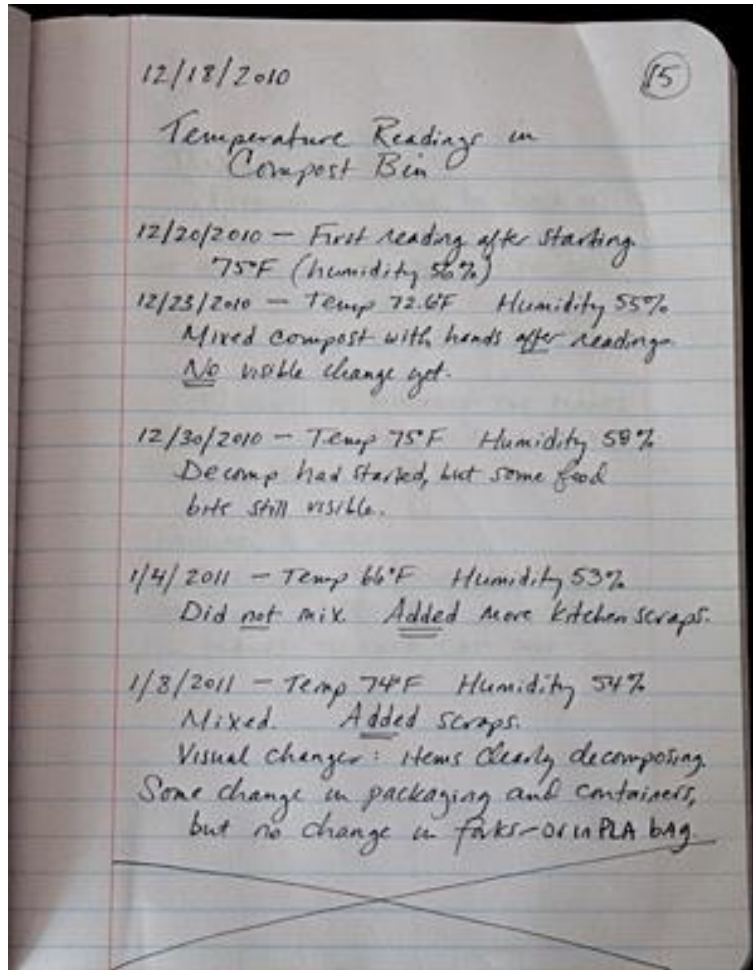 12/18/2010 15
Temperature Readings in
Compost Bin
12/20/2010 — First reading after starting
75°F (humidity 56%)
12/23/2010 — Temp 72.6°F Humidity 55%
Mixed compost with hands after readings
No visible change yet.
12/30/2010 — Temp 75°F Humidity 58%
Decomp had started, but some food
bits still visible.
1/4/2011 — Temp 66°F Humidity 53%
Did not mix. Added more kitchen scraps.
1/8/2011 — Temp 74°F Humidity 54%
Mixed. Added scraps.
Visual changes: items clearly decomposing.
Some change in packaging and containers,
but no change in forks—or in PLA bag